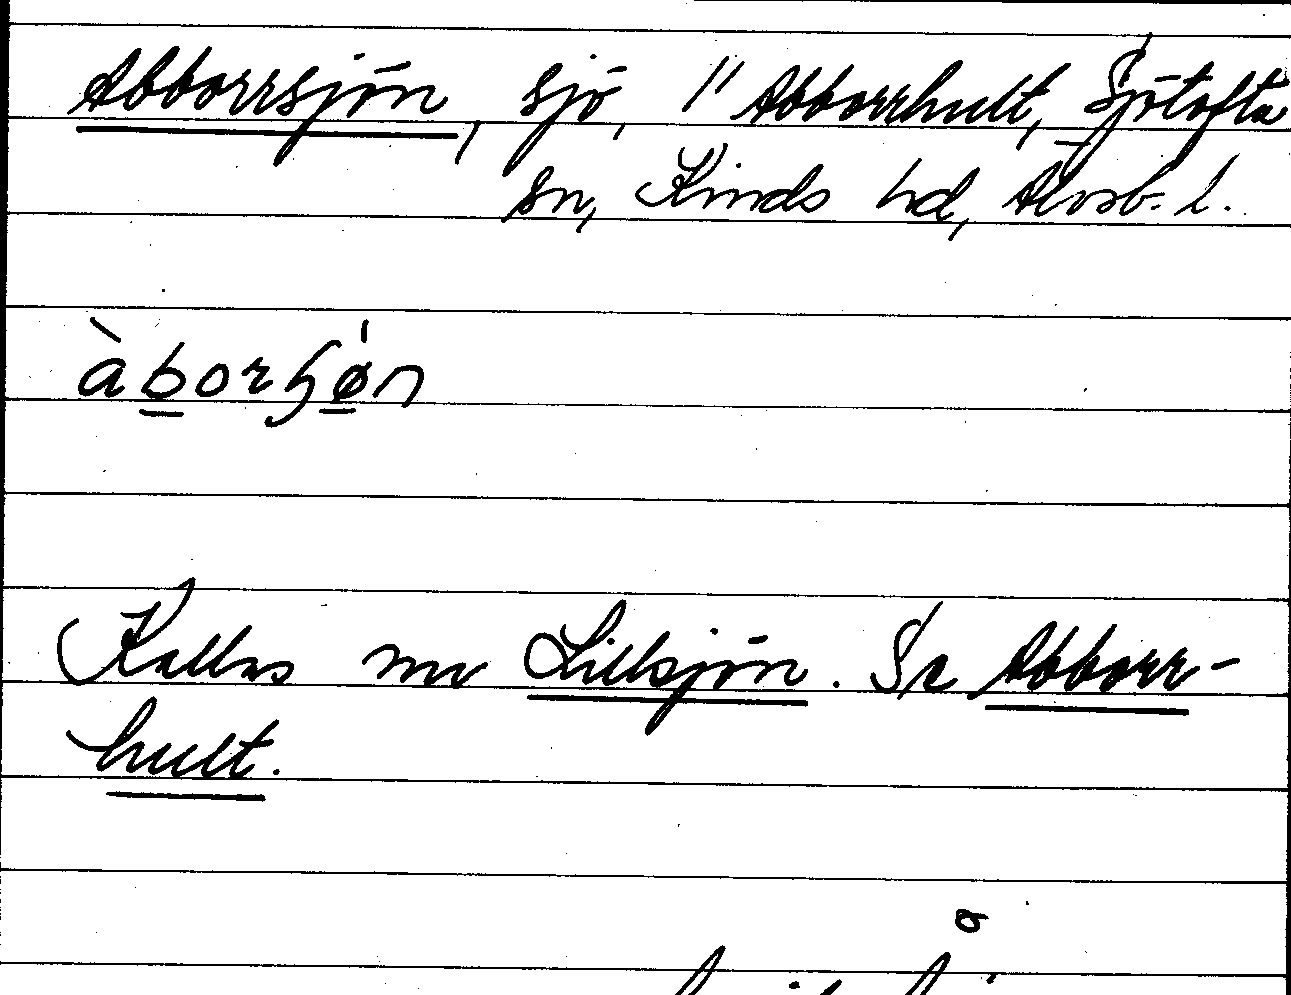 Abborrsjön, sjö, 1/1 Abborrhult, Sjötofta
sn, Kinds hd, Älvsb. l.
àborʃǿn
Kallas nu Lillsjön. Se Abborr-
hult.